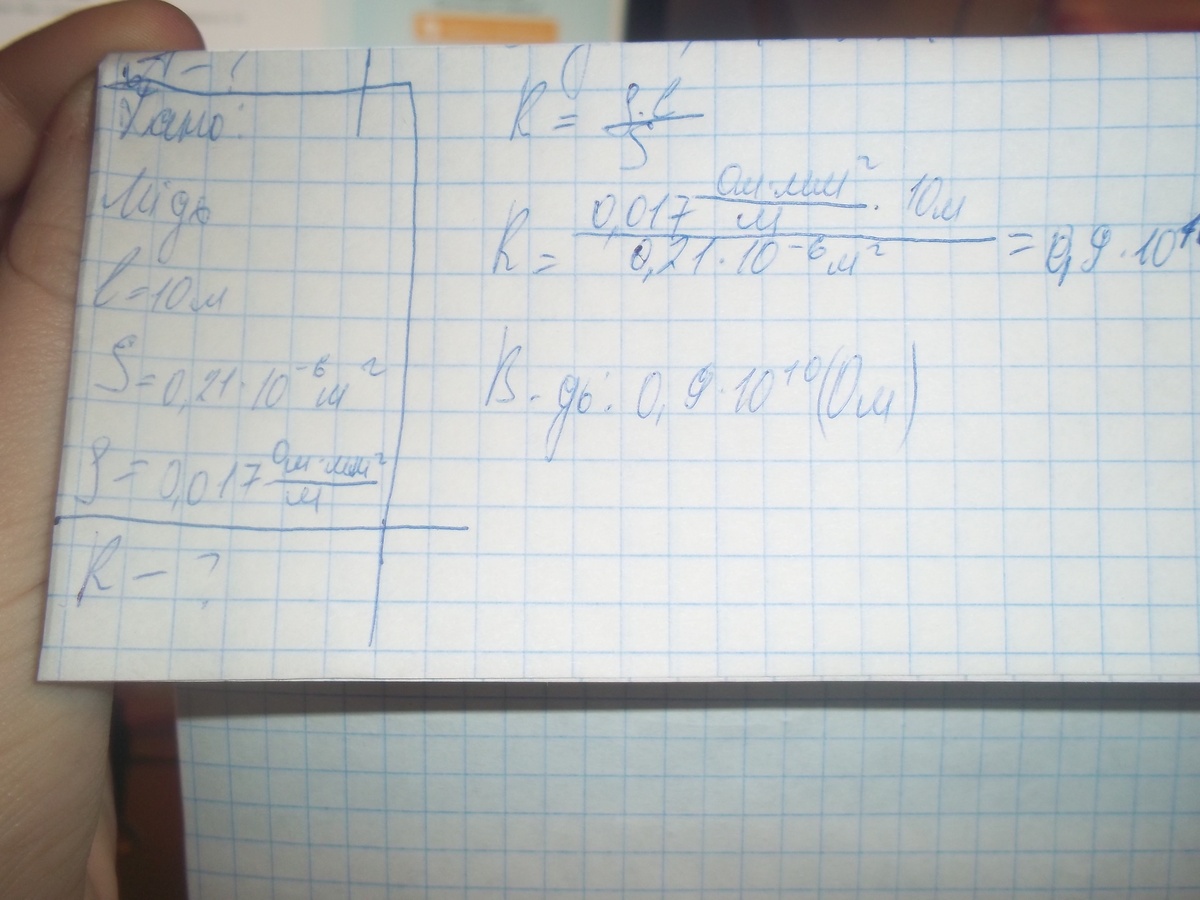 R - ?
Дано:
Мідь
l = 10м
S = 0,21·10⁻⁶ м²
ρ = 0,017 Ом·мм²/м
R - ?
R = ρ·l/S
R = 0,017 Ом·мм²/м · 10м / 0,21·10⁻⁶ м² = 0,9·10¹⁰
В-дь: 0,9·10¹⁰ (Ом)